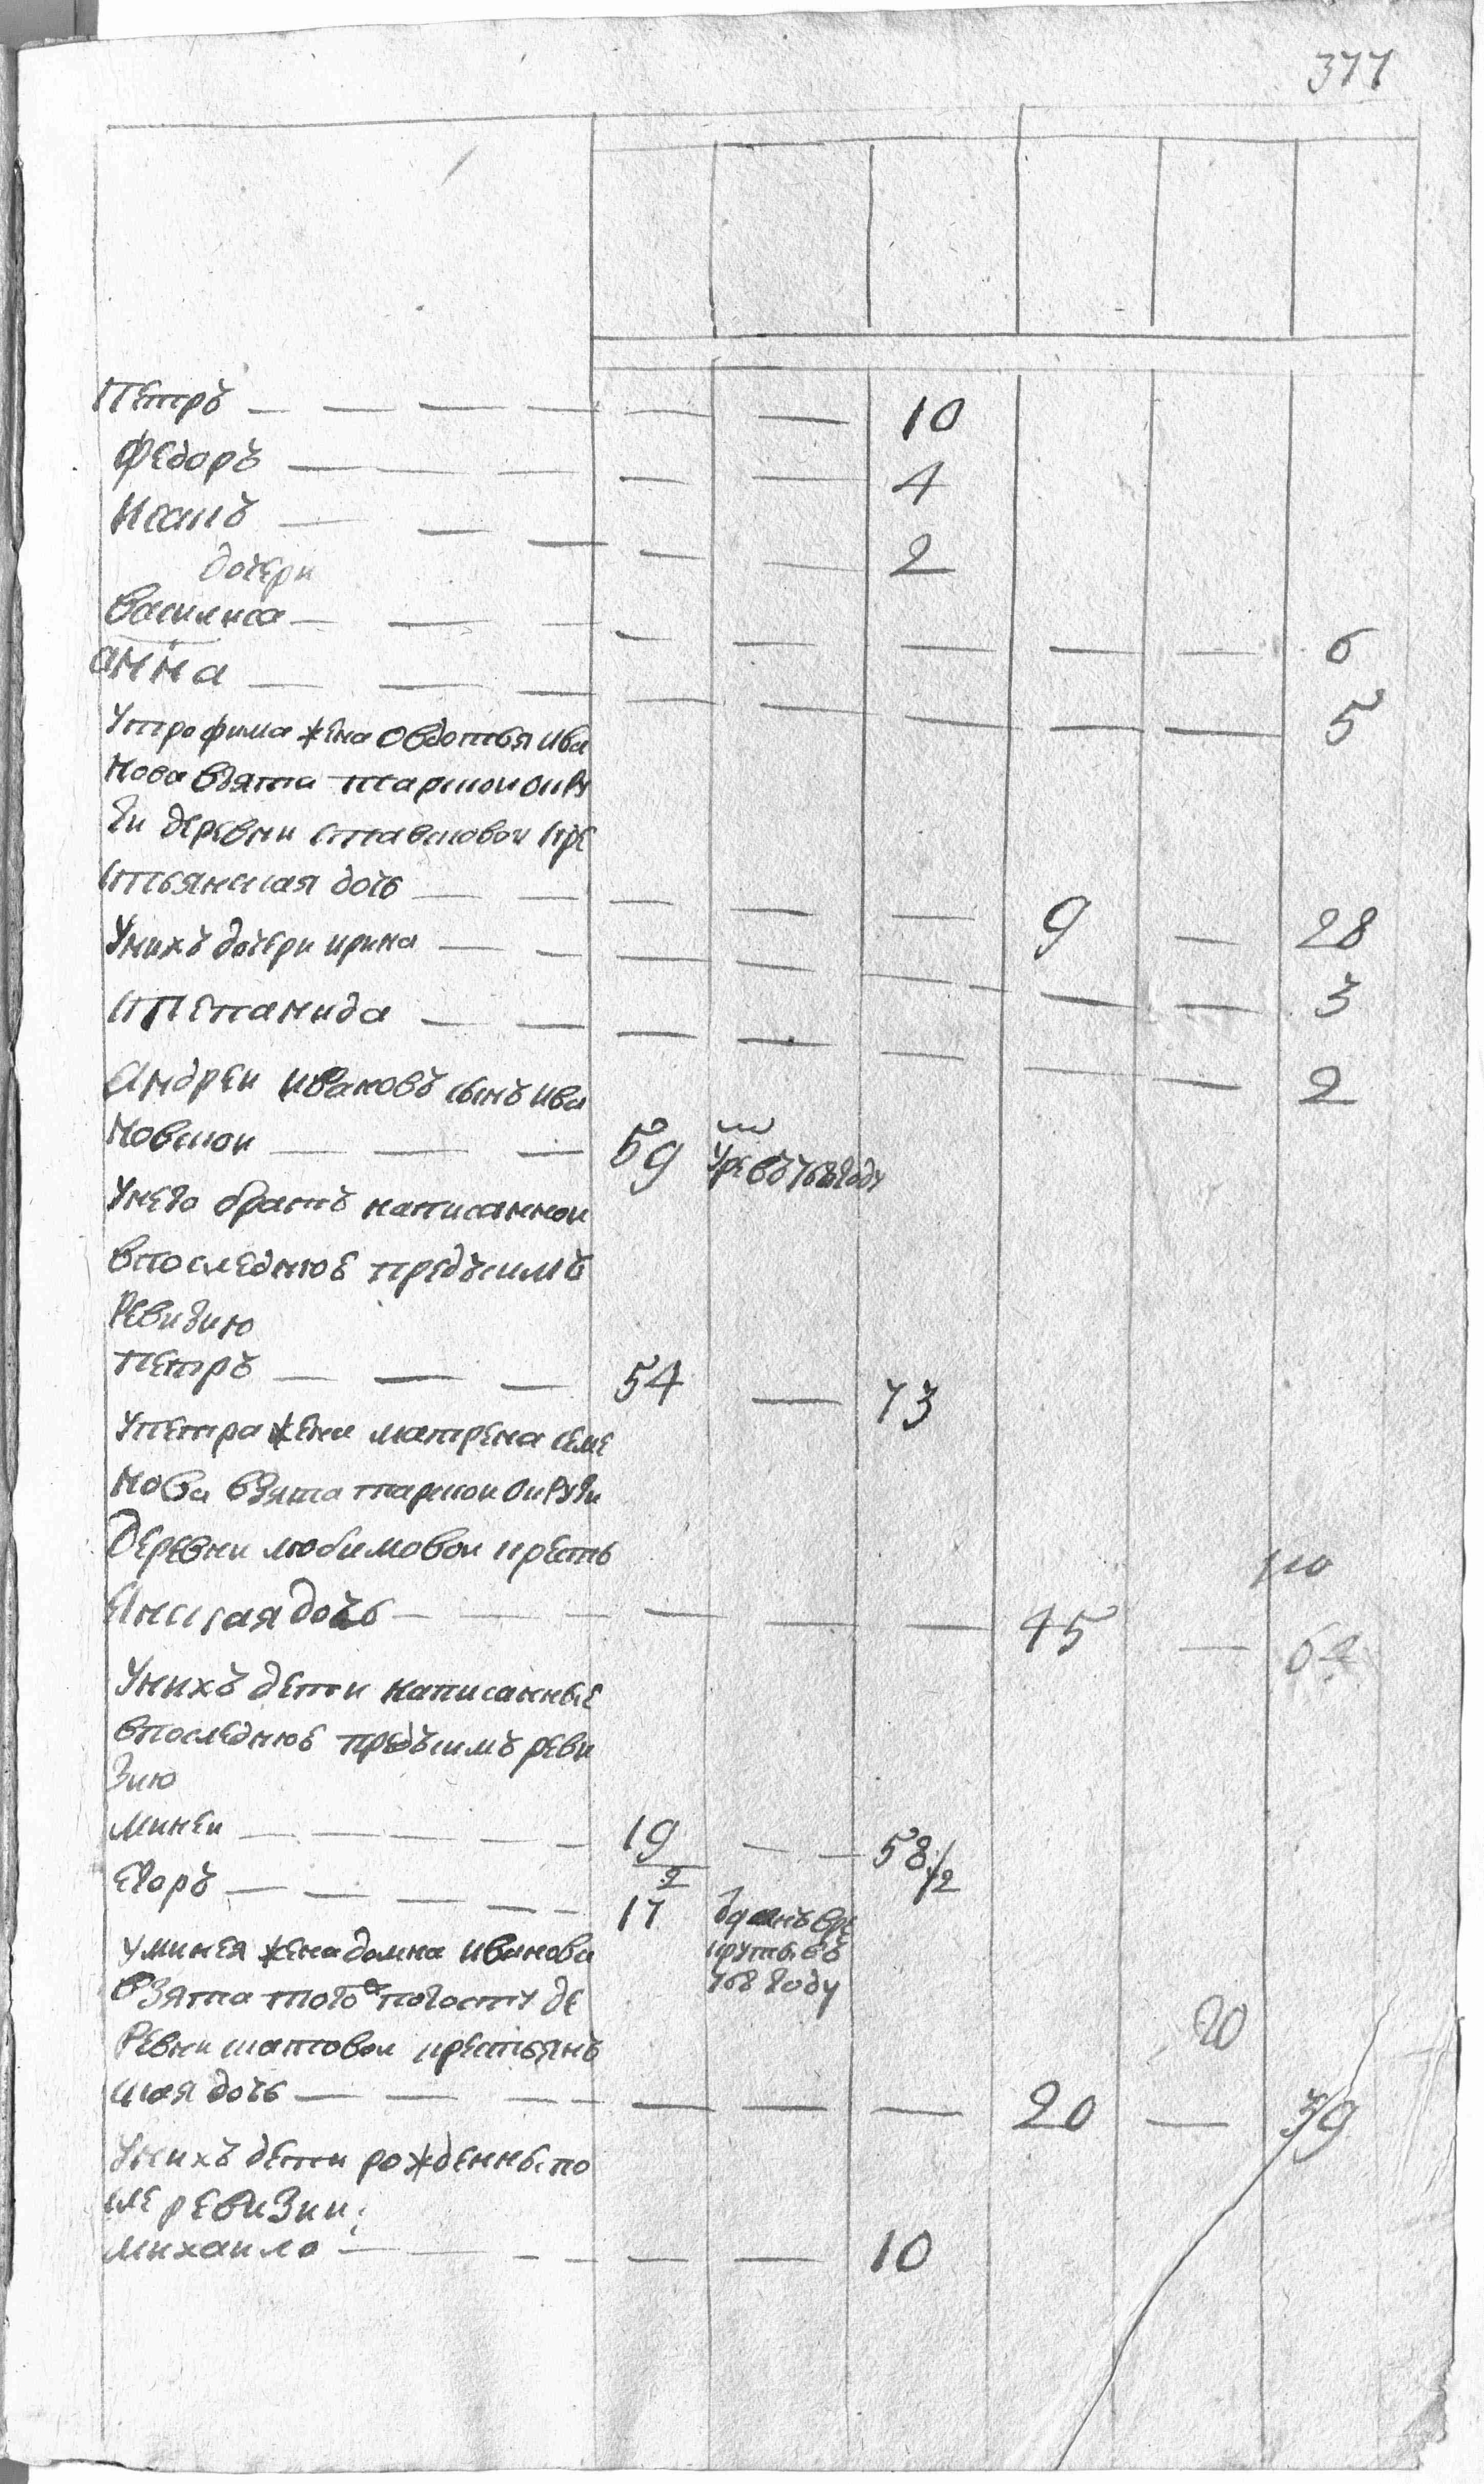 377
Петръ — — — — — — 10
Федоръ — — — — — 4
Иванъ — — — — — 2
дочери
Василиса — — — — — — — — 6
анна — — — — — — — — 5
У трофима жена овдотья ива
нова взята шаркой окру
ги деревни ставкловой кре
стьянская дочь — — — — — 9 — 28
У нихъ дочери ирина — — — — — — — 3
степанида — — — — — — — 2
Андреи ивановъ сынъ ива
новской — — — 59 Умре въ 768 году
У него братъ написанной
в последнюю предъ симъ
Ревизию
петръ — — — 54 — 73
У петра жена матрена семе
нова взята шаркой округи
Деревни любимовой кресть
янская дочь — — — — — — 45 — 64
У нихъ дети написанные
в последнюю предъ симъ реви
зию
миней — — — — — 19 — — 38/2
Егоръ — — — — — 2
17 Зданъ в ре
круты въ
768 году
У минея жена домна иванова
взята того погосту де
Ревни шаповой крестьянъ
20
ская дочь — — — — — — — 20 — 39
У нихъ дети рожденные по
сле ревизии:
михаило — — — — — — 10